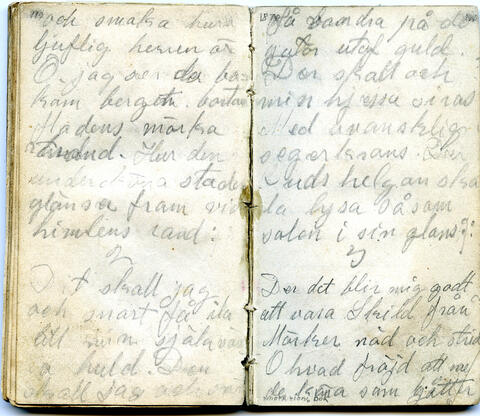 och smaka huru
ljuflig herren är
O, jag ser da
kom bergen bortom
Flodens mörka
strand. Hur den
undersköna staden
glänsa fram vid
himlens rand:
2
Dit skall jag
och snart få ila
att min själavän
så huld. Den
skall jag och
få vandra på de
gator utaf guld.
Der skall och
min hjessa siras
Med ovansklig
segerkrans.
Guds helgon ska
da lysa såsom
solen i sin glans:
3
Der det blir mig godt
att vara Skild från
Mörker nöd och strid
O hvad fröjd att
de kära som